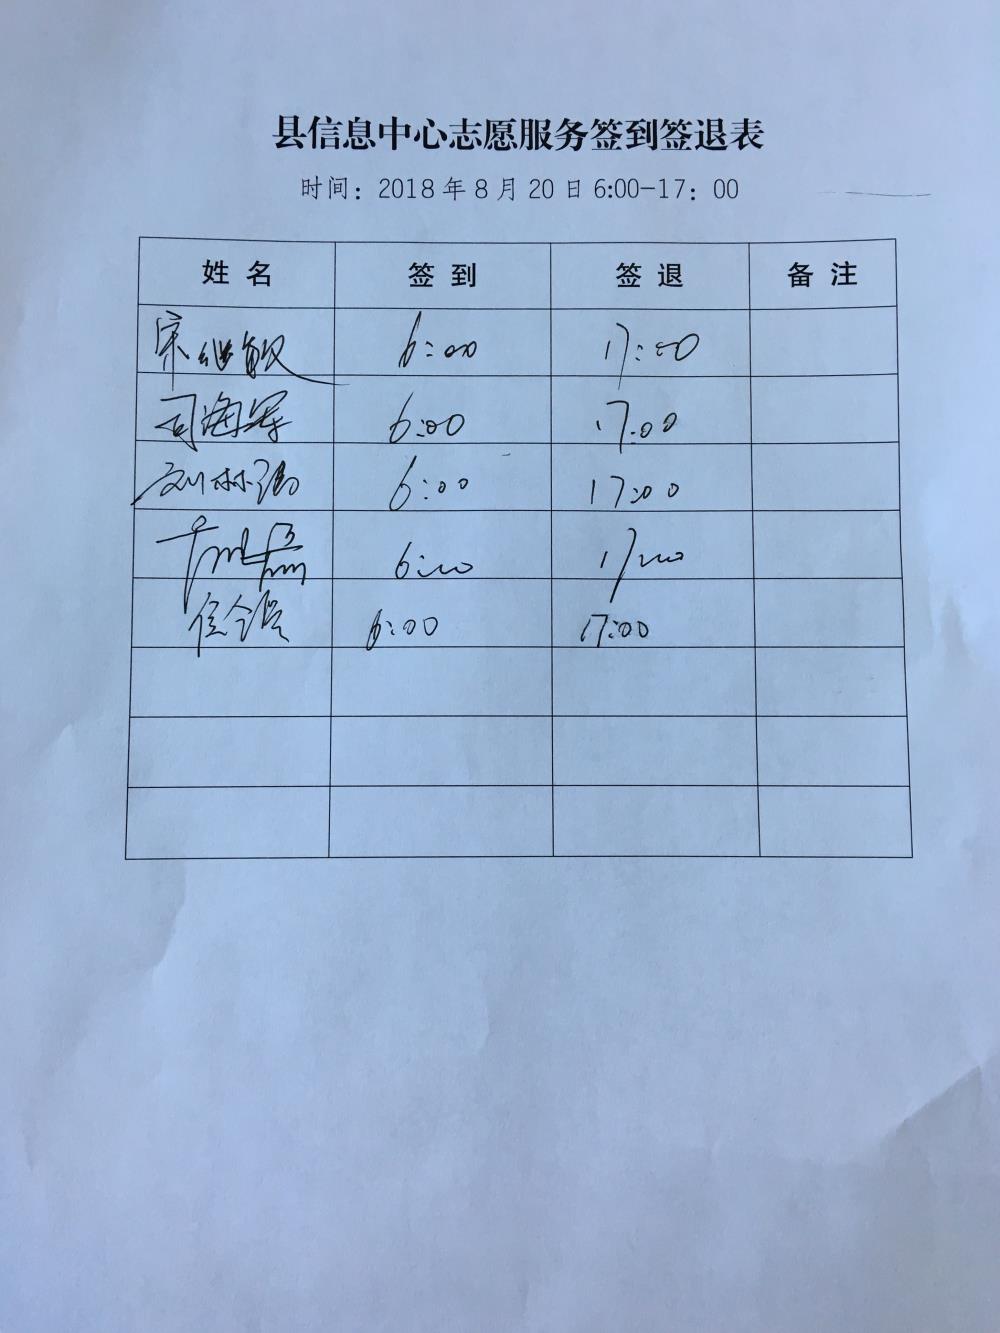 县信息中心志愿服务签到签退表
时间：2018年8月20日6:00-17：00
姓名 签到 签退 备注
宋继敏 6:00 17:00
司海军 6:00 17:00
刘林强 6:00 17:00
6:00 17:00
6:00 17:00